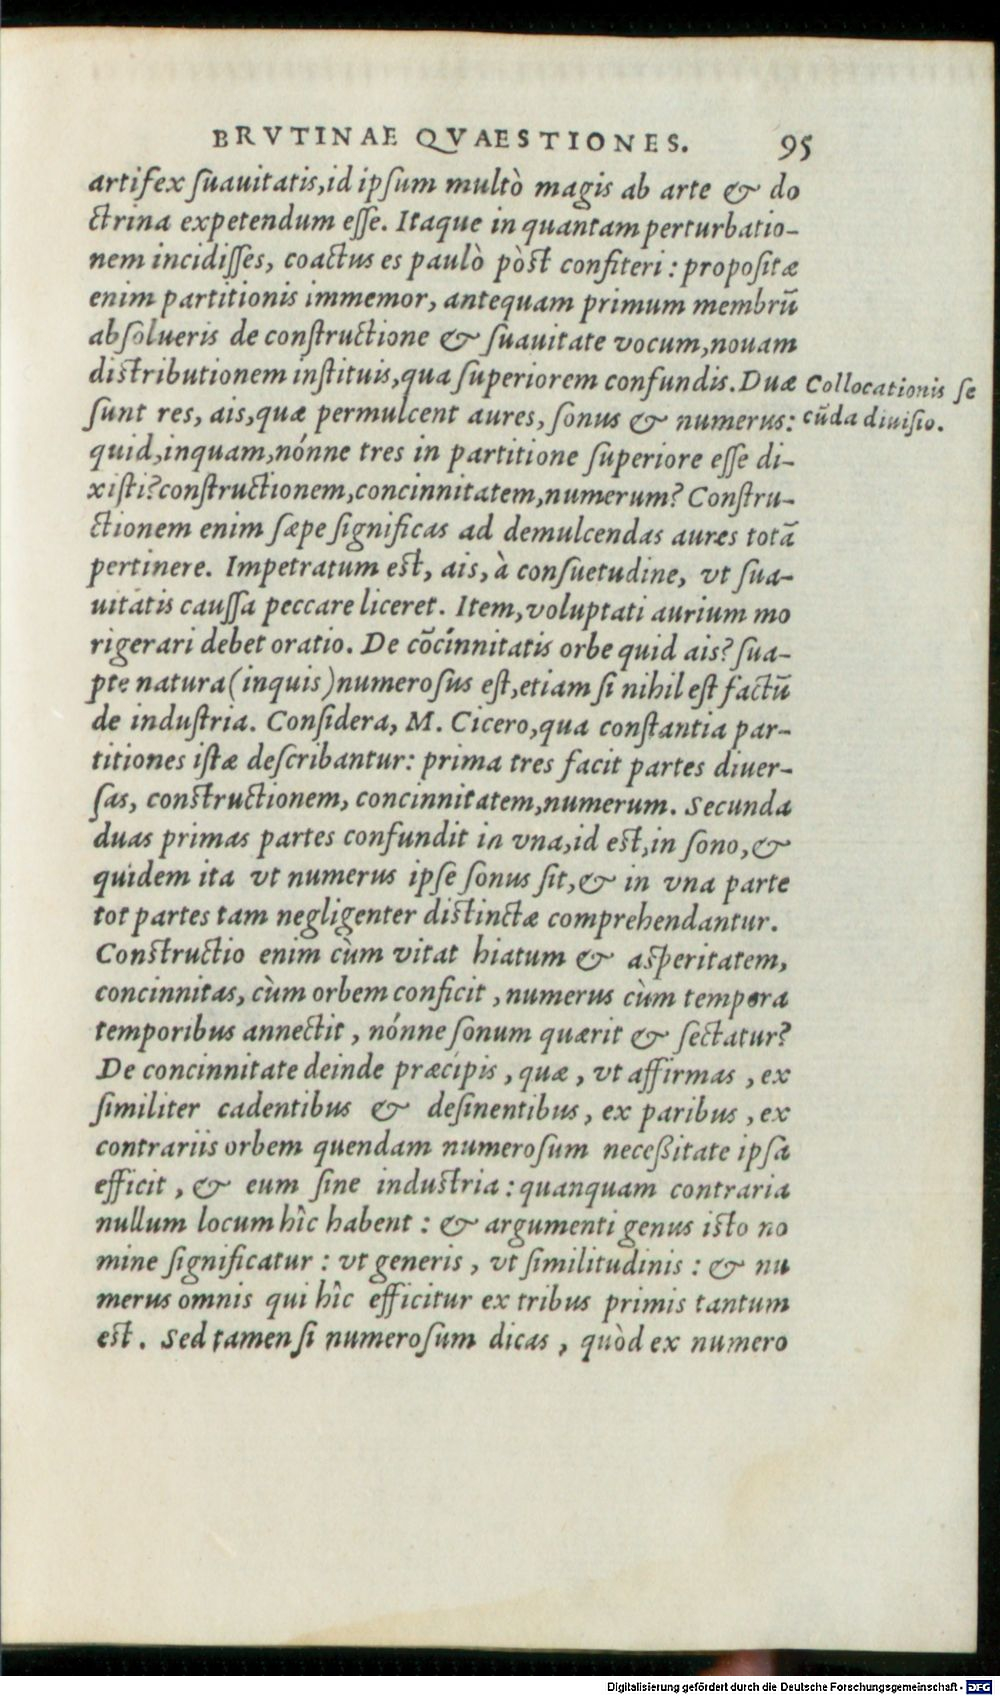 BRVTINAE QVAESTIONES. 95
artifex ſuauitatis,id ipſum multò magis ab arte & do
ctrina expetendum eſſe. Itaque in quantam perturbatio-
nem incidiſſes, coactus es paulò pòst confiteri : propoſitæ
enim partitionis immemor, antequam primum membrū
abſolueris de conſtructione & ſuauitate vocum,nouam
distributionem inſtituis,qua ſuperiorem confundis. Duæ
Collocationis ſe
cūda diuiſio.
ſunt res, ais,quæ permulcent aures, ſonus & numerus:
quid,inquam,nónne tres in partitione ſuperiore eſſe di-
xiſti?conſtructionem,concinnitatem,numerum? Conſtru-
ctionem enim ſæpe ſignificas ad demulcendas aures totā
pertinere. Impetratum est, ais, à conſuetudine, vt ſua-
uitatis cauſſa peccare liceret. Item,voluptati aurium mo
rigerari debet oratio. De cōcinnitatis orbe quid ais? ſua-
pte natura(inquis)numeroſus eſt,etiam ſi nihil eſt factū
de induſtria. Conſidera, M. Cicero,qua conſtantia par-
titiones iſtæ deſcribantur: prima tres facit partes diuer-
ſas, constructionem, concinnitatem,numerum. Secunda
duas primas partes confundit in vna,id est,in ſono,&
quidem ita vt numerus ipſe ſonus ſit,& in vna parte
tot partes tam negligenter distinctæ comprehendantur.
Constructio enim cùm vitat hiatum & asperitatem,
concinnitas, cùm orbem conficit , numerus cùm tempora
temporibus annectit , nónne ſonum quærit & ſectatur?
De concinnitate deinde præcipis , quæ , vt affirmas , ex
ſimiliter cadentibus & deſinentibus, ex paribus , ex
contrariis orbem quendam numeroſum neceßitate ipſa
efficit , & eum ſine industria : quanquam contraria
nullum locum hîc habent : & argumenti genus isto no
mine ſignificatur : vt generis , vt ſimilitudinis : & nu
merus omnis qui hîc efficitur ex tribus primis tantum
est. Sed tamen ſi numeroſum dicas , quòd ex numero
Digitalisierung gefördert durch die Deutsche Forschungsgemeinschaft - DFG